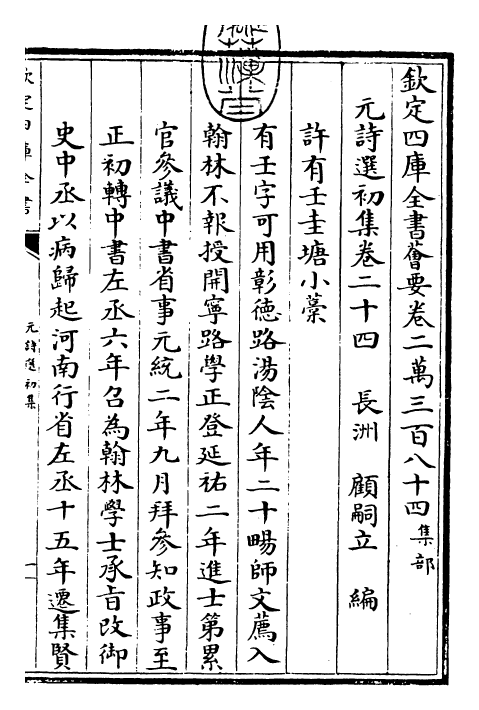 欽定四庫全書薈要卷二萬三百八十四集部
元詩選初集卷二十四　長洲　顧嗣立　編
許有壬圭塘小藁
有壬字可用彰徳路湯陰人年二十暢師文薦入
翰林不報授開寧路學正登延祐二年進士第累
官參議中書省事元統二年九月拜參知政事至
正初轉中書左丞六年召為翰林學士承旨改御
史中丞以病歸起河南行省左丞十五年遷集賢
欽定四庫全書
元詩選初集
一